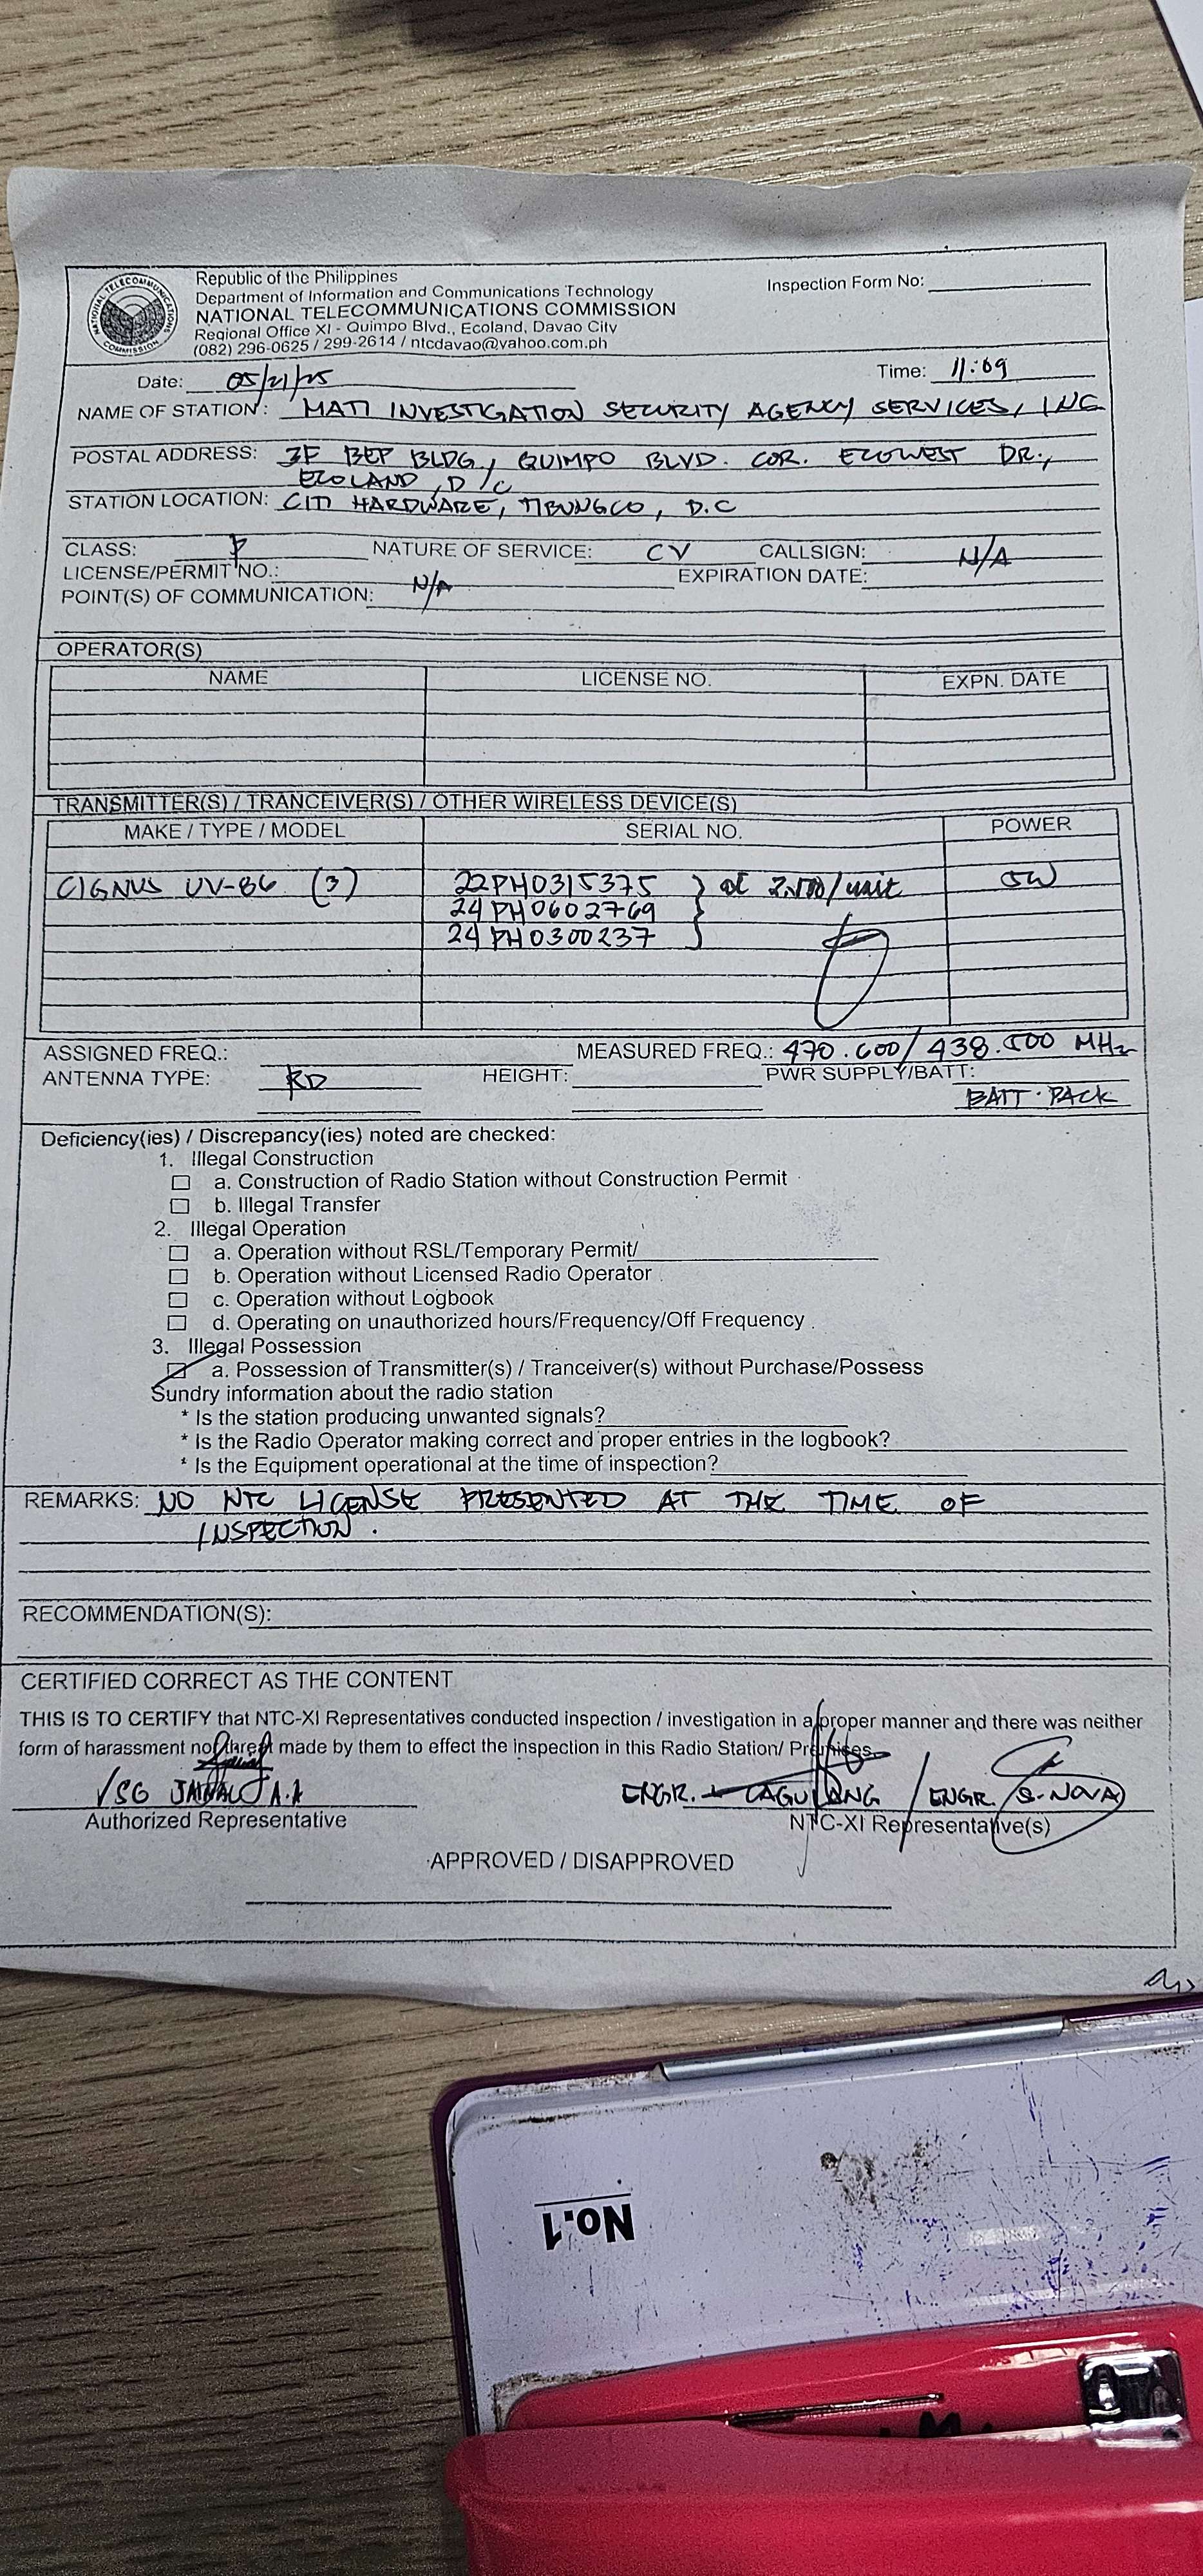 Republic of the Philippines
Department of Information and Communications Technology
NATIONAL TELECOMMUNICATIONS COMMISSION
Regional Office XI - Quimpo Blvd., Ecoland, Davao City
(082) 296-0625 / 299-2614 / ntcdavao@yahoo.com.ph
NATIONAL TELECOMMUNICATIONS COMMISSION
Inspection Form No:
Date: 05/21/25 Time: 11:09
NAME OF STATION: MATI INVESTIGATION SECURITY AGENCY SERVICES, INC
POSTAL ADDRESS: 3F BEP BLDG., QUIMPO BLVD. COR. ECOWEST DR.,
ECOLAND, D/C
STATION LOCATION: CITI HARDWARE, TIBUNGCO, D.C
CLASS: P NATURE OF SERVICE: CV CALLSIGN: N/A
LICENSE/PERMIT NO.: EXPIRATION DATE:
POINT(S) OF COMMUNICATION: N/A
OPERATOR(S)
NAME LICENSE NO. EXPN. DATE
TRANSMITTER(S) / TRANCEIVER(S) / OTHER WIRELESS DEVICE(S)
MAKE / TYPE / MODEL SERIAL NO. POWER
CIGNUS UV-86 (3) 22PH0315375 } at /unit 5W
24PH0602769
24PH0300237
ASSIGNED FREQ.: MEASURED FREQ.: 470.600/438.500 MHz
ANTENNA TYPE: RD HEIGHT: PWR SUPPLY/BATT:
BATT. PACK
Deficiency(ies) / Discrepancy(ies) noted are checked:
1. Illegal Construction
a. Construction of Radio Station without Construction Permit
b. Illegal Transfer
2. Illegal Operation
a. Operation without RSL/Temporary Permit/
b. Operation without Licensed Radio Operator
c. Operation without Logbook
d. Operating on unauthorized hours/Frequency/Off Frequency
3. Illegal Possession
a. Possession of Transmitter(s) / Tranceiver(s) without Purchase/Possess
Sundry information about the radio station
* Is the station producing unwanted signals?
* Is the Radio Operator making correct and proper entries in the logbook?
* Is the Equipment operational at the time of inspection?
REMARKS: NO NTC LICENSE PRESENTED AT THE TIME OF
INSPECTION.
RECOMMENDATION(S):
CERTIFIED CORRECT AS THE CONTENT
THIS IS TO CERTIFY that NTC-XI Representatives conducted inspection / investigation in a proper manner and there was neither
form of harassment nor threat made by them to effect the inspection in this Radio Station/ Premises.
SG A.A ENGR. / ENGR. S. NOVA
Authorized Representative NTC-XI Representative(s)
APPROVED / DISAPPROVED
No.1